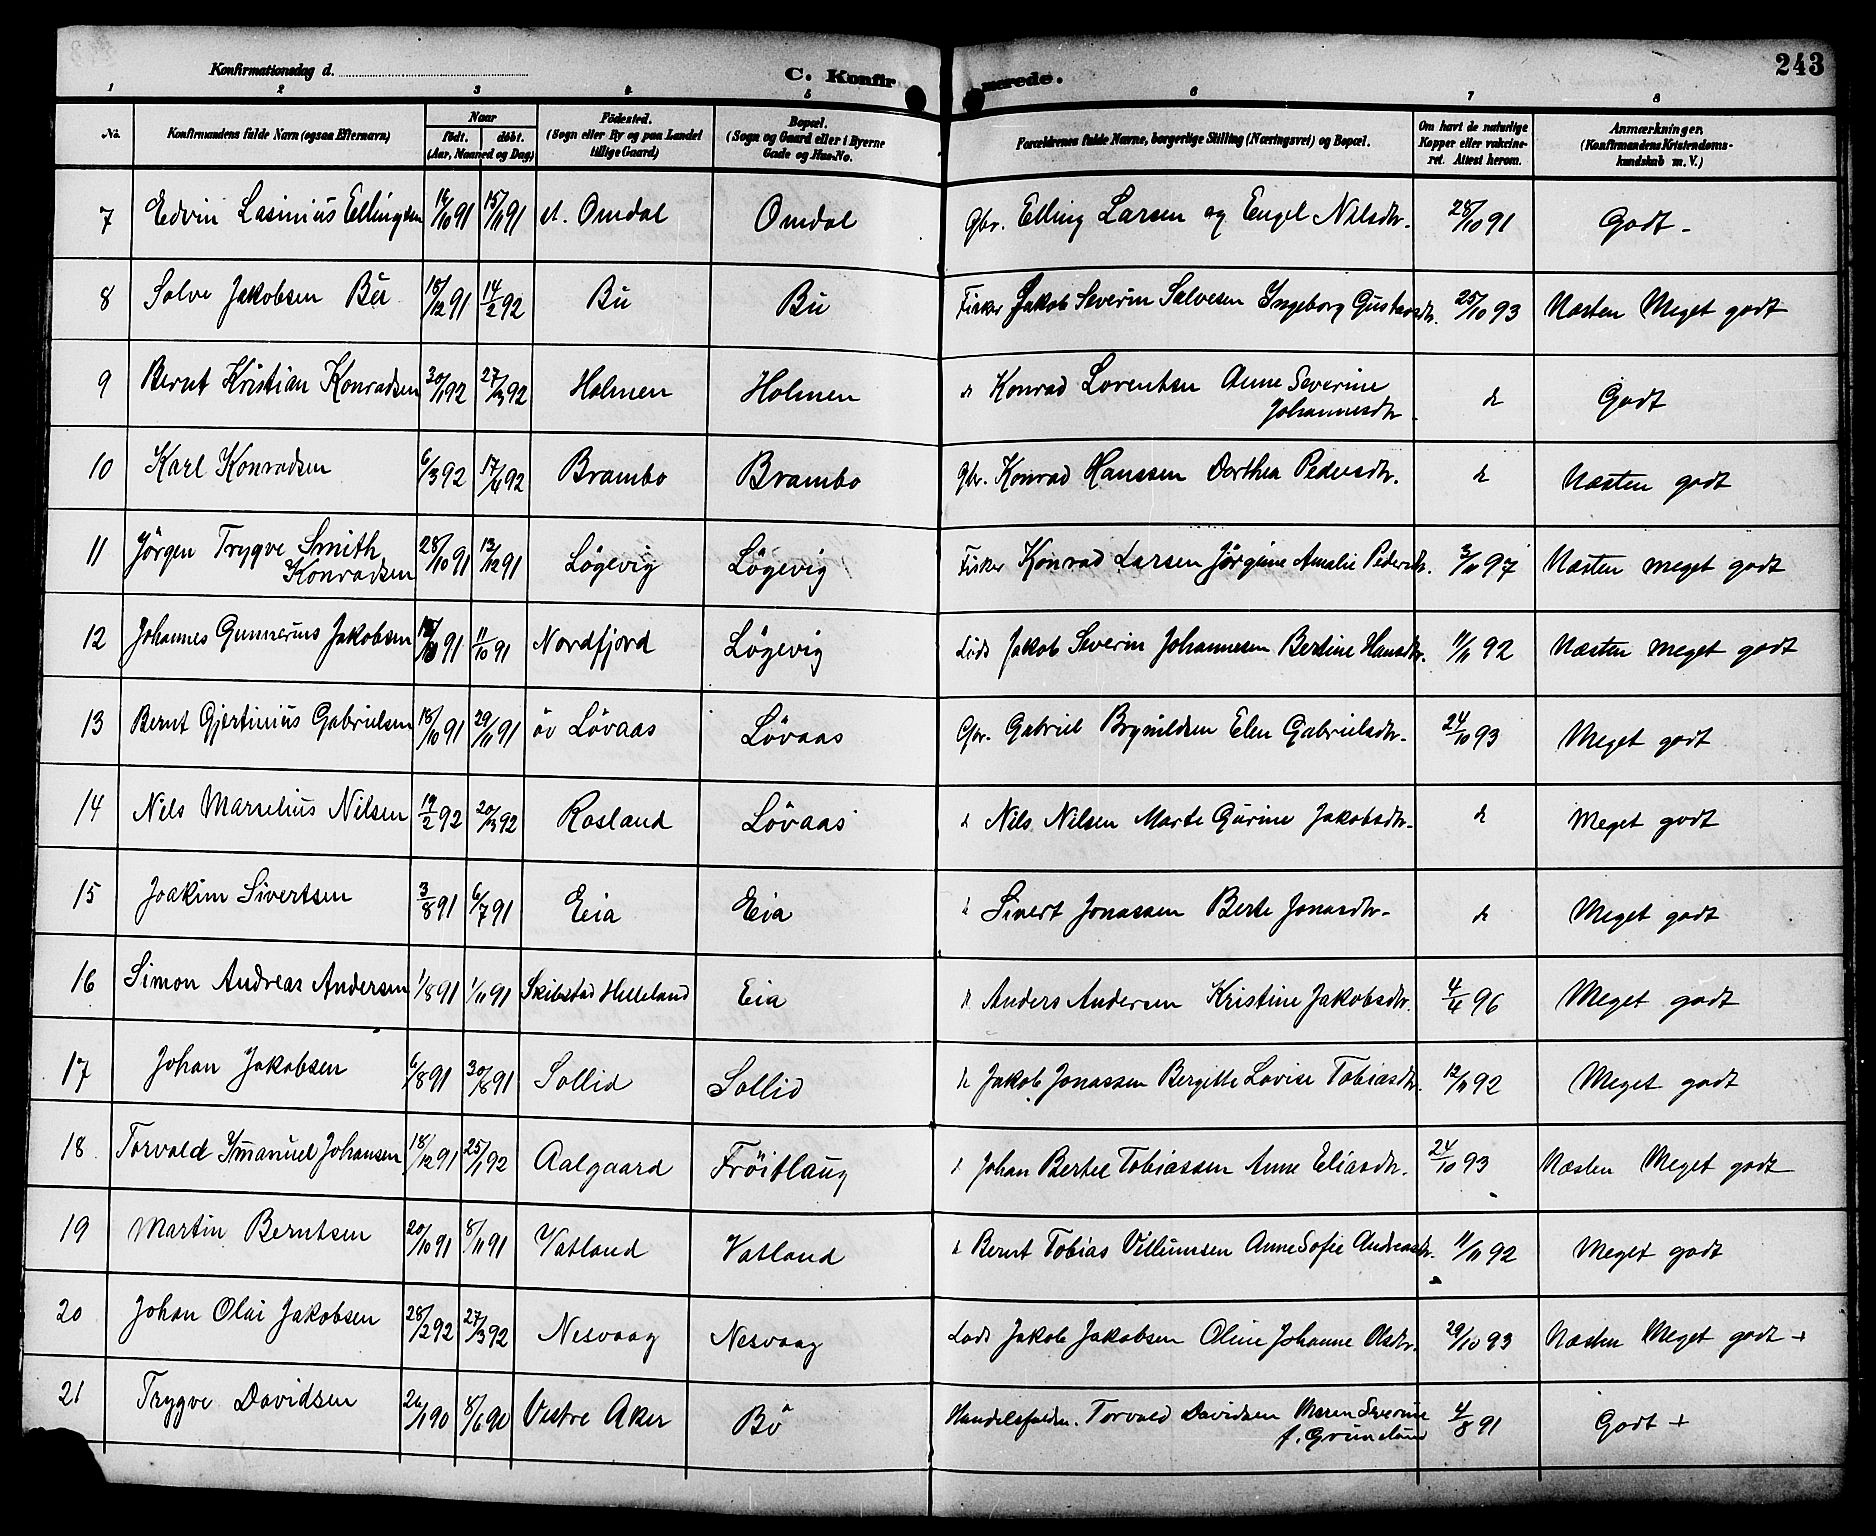 243
Konfirmationsdag d. C. Konfirmerede.
1 2 3 4 5 6 7 8
No. Konfirmandens fulde Navn (ogsaa Efternavn) Naar født. døbt. (Aar, Maaned og Dag) Fødested. (Sogn eller By og paa Landet tillige Gaard) Bopæl. (Sogn og Gaard eller i Byerne Gade og Hus-No. Forældrenes fulde Navne, borgerlige Stilling (Næringsvei) og Bopæl. Om havt de naturlige Kopper eller vakcineret. Attest herom. Anmærkninger. (Konfirmandens Kristendomskundskab m. V.)
7 Edvin Lasinius Ellingsen 14/10 91 15/11 91 Omdal Omdal Gbr. Elling Larsen og Engel Nilsdtr. 28/10 91 Godt
8 Solve Jakobsen Bu 18/12 91 14/2 92 Bu Bu Fisker Jakob Severin Salvesen Ingeborg Gustavsdtr. 25/10 93 Næsten Meget godt
9 Bernt Kristian Konradsen 30/1 92 27/3 92 Holmen Holmen d Konrad Lorentsen Anne Severine
Johannesdtr. d Godt
10 Karl Konradsen 6/3 92 17/4 92 Brambo Brambo Gbr. Konrad Hanssen Dorthea Pedersdtr. d Næsten godt
11 Jörgen Trygve Smith
Konradsen 28/10 91 13/12 91 Lögevig Lögevig Fisker Konrad Larsen Jörgine Amalie Pedersdtr. 3/11 97 Næsten meget godt
12 Johannes Gunnerius Jakobsen 91 11/10 91 Nordfjord Lögevig Lods Jakob Severin Johannesen Bertine Hansdtr. 11/11 92 Næsten meget godt
13 Bernt Gjertinius Gabrielsen 18/10 91 29/11 91 öv Lövaas Lövaas Gbr. Gabriel Brynildsen Elen Gabrielsdtr. 24/10 93 Meget godt
14 Nils Marselius Nilsen 19/2 92 20/3 92 Rosland Lövaas d Nils Nilsen Marte Gurine Jakobsdtr. d Meget godt
15 Joakim Sivertsen 3/8 91 6/7 91 Eia Eia d Sivert Jonassen Berte Jonasdtr. d Meget godt
16 Simon Andreas Andersen 1/8 91 1/11 91 Skibstad Helleland Eia d Anders Andersen Kristine Jakobsdtr. 96 Meget godt
17 Johan Jakobsen 6/8 91 30/8 91 Sollid Sollid d Jakob Jonassen Bergitte Lovise Tobiasdtr. 12/11 92 Meget godt
18 Torvald Imanuel Johansen 18/12 91 25/1 92 Aalgaard Fröitlaug d Johan Bertel Tobiassen Anne Eliasdtr. 24/10 93 Næsten Meget godt
19 Martin Berntsen 20/10 91 8/11 91 Vatland Vatland d Bernt Tobias Villumsen Anne Sofie Andreasdtr. 11/11 92 Meget godt
20 Johan Olai Jakobsen 28/2 92 27/3 92 Nesvaag Nesvaag Lods Jakob Jakobsen Oline Johanne Olsdtr. 29/10 93 Næsten Meget godt +
21 Trygve Davidsen 26/1 90 8/6 90 Vestre Aker Bö Torvald Davidsen Maren Severine
f. Grundelund 4/8 91 Godt +